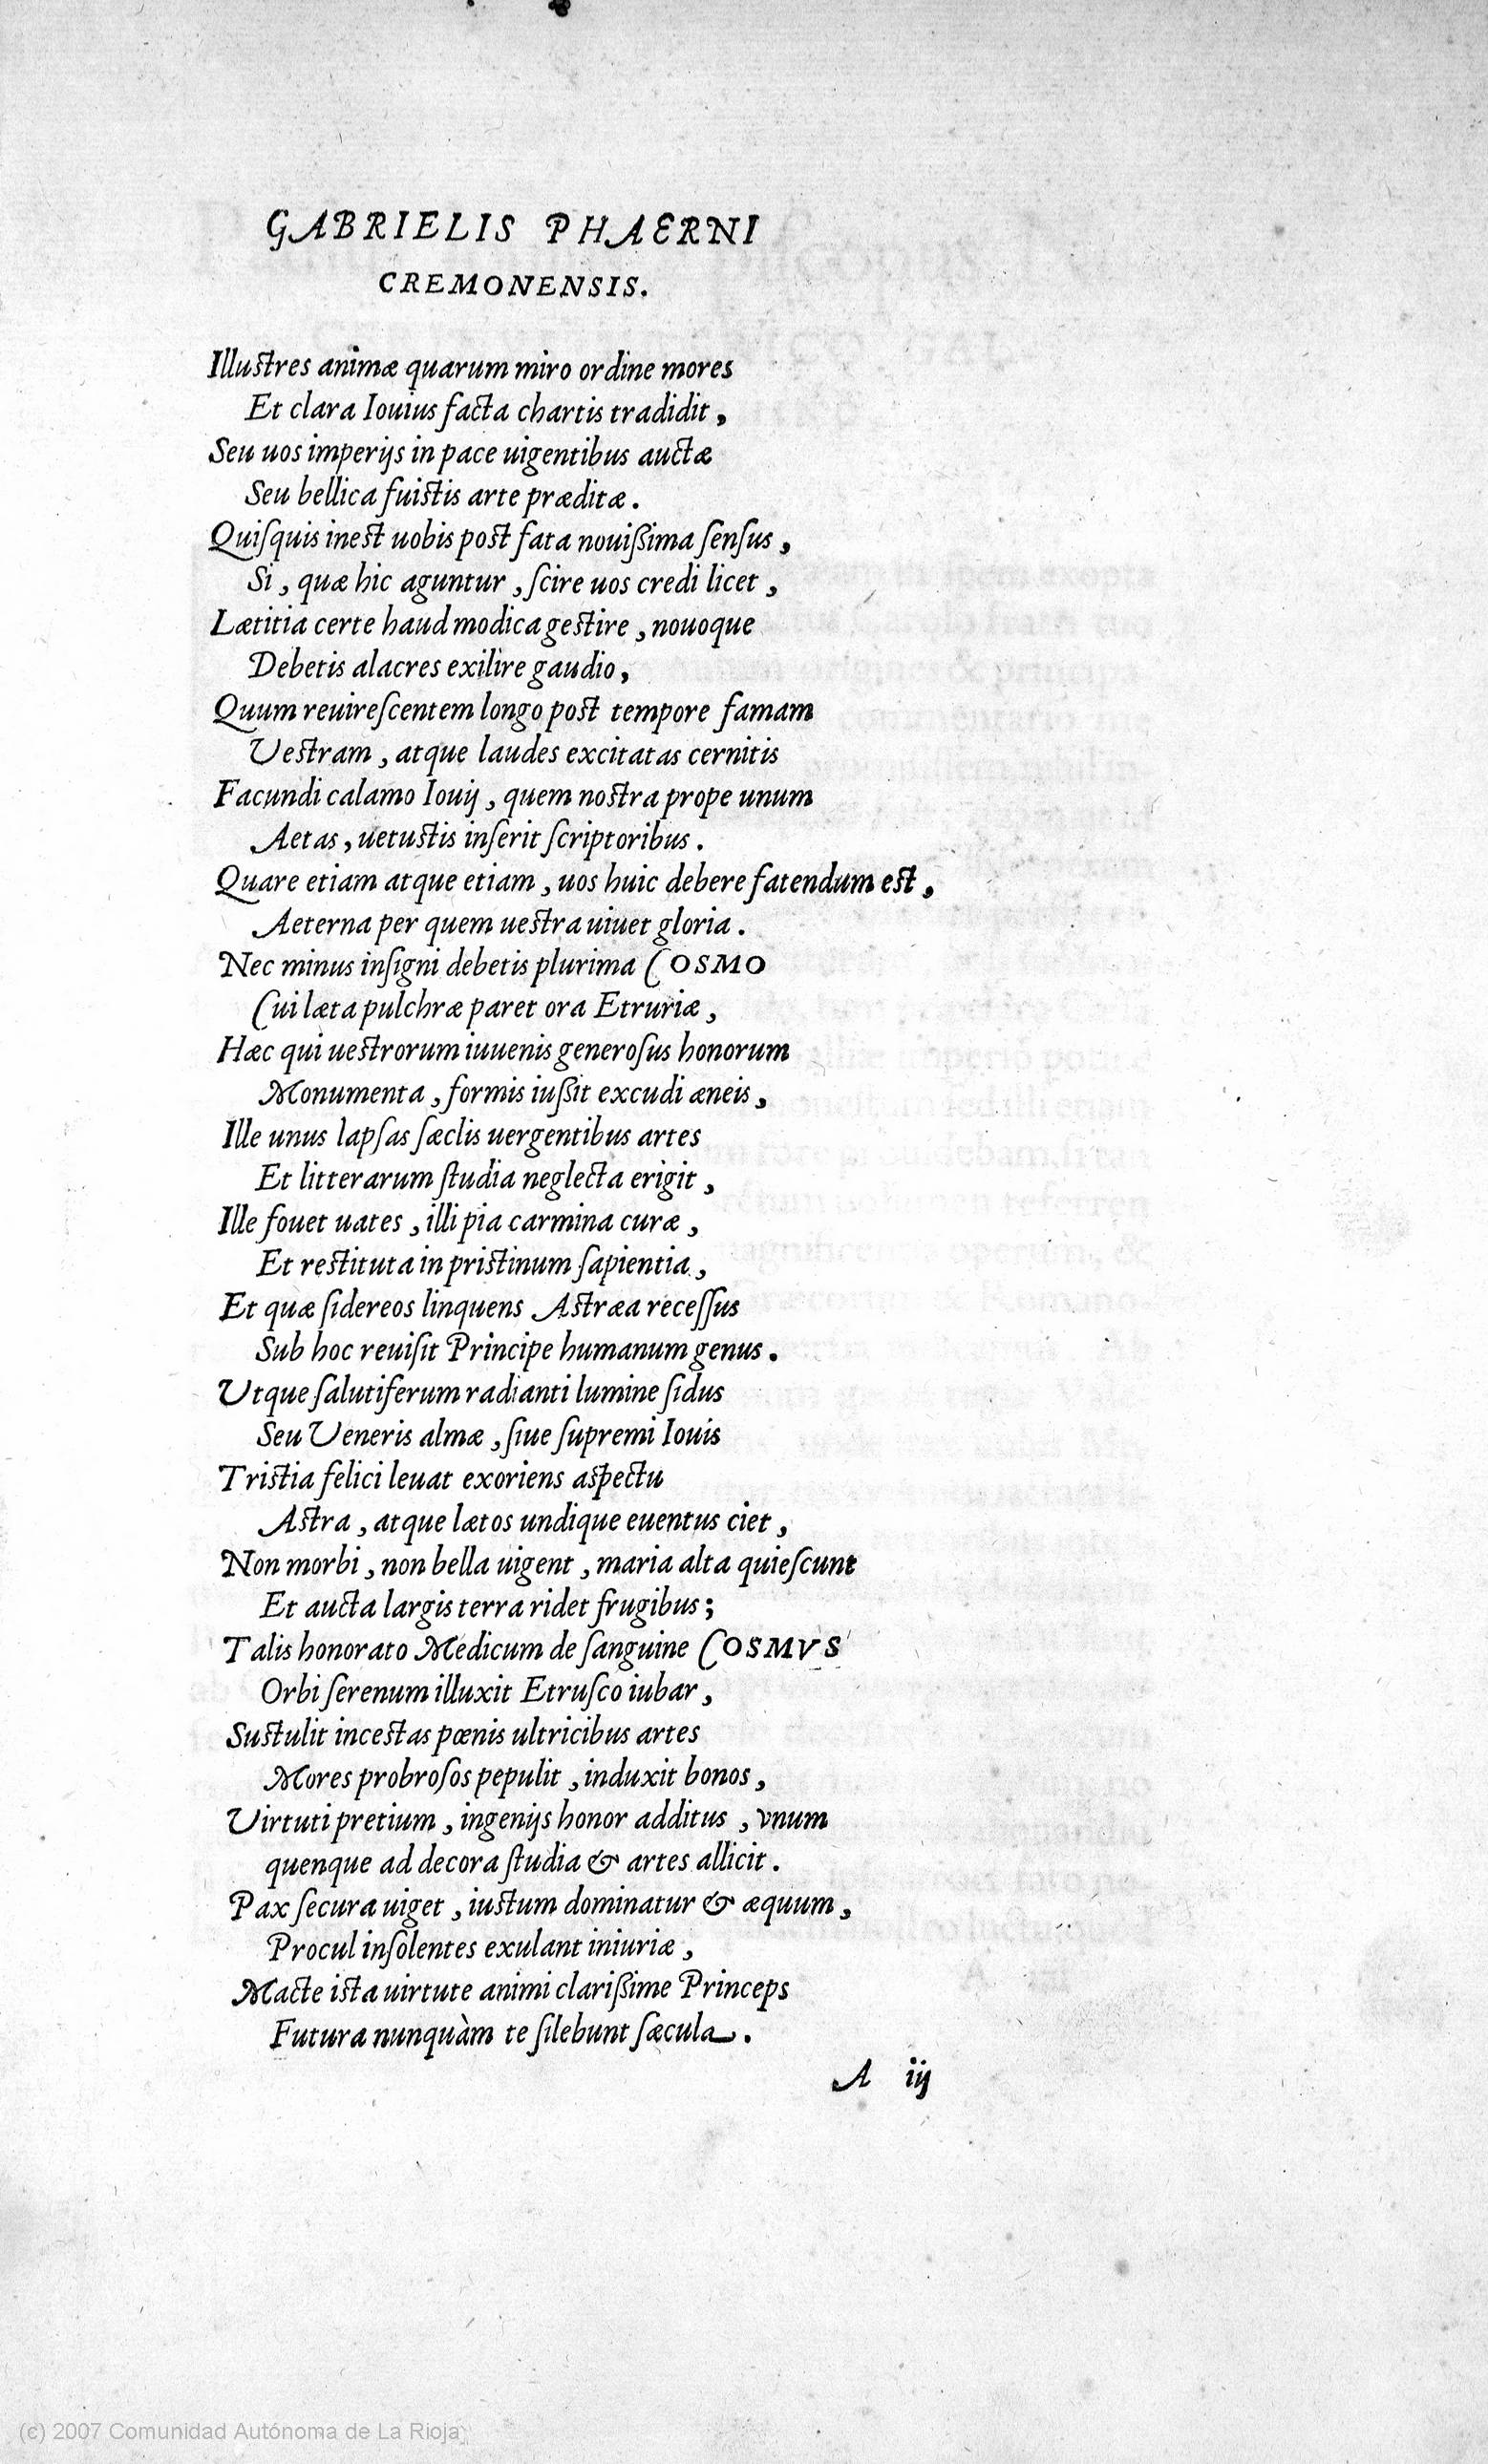 GABRIELIS PHAERNI
CREMONENSIS.
Illustres animæ quarum miro ordine mores
Et clara Iouius facta chartis tradidit,
Seu uos imperijs in pace uigentibus auctæ
Seu bellica fuistis arte præditæ.
Quiſquis inest uobis post fata nouißima ſenſus,
Si, quæ hic aguntur, ſcire uos credi licet,
Lætitia certe haud modica gestire, nouoque
Debetis alacres exilire gaudio,
Quum reuireſcentem longo post tempore famam
Vestram, atque laudes excitatas cernitis
Facundi calamo Iouij, quem nostra prope unum
Aetas, uetustis inſerit ſcriptoribus.
Quare etiam atque etiam, uos huic debere fatendum est,
Aeterna per quem uestra uiuet gloria.
Nec minus inſigni debetis plurima COSMO
Cui læta pulchræ paret ora Etruriæ,
Hæc qui uestrorum iuuenis generoſus honorum
Monumenta, formis iußit excudi æneis,
Ille unus lapſas ſæclis uergentibus artes
Et litterarum ſtudia neglecta erigit,
Ille fouet uates, illi pia carmina curæ,
Et restituta in pristinum ſapientia,
Et quæ ſidereos linquens Astræa receſſus
Sub hoc reuiſit Principe humanum genus.
Vtque ſalutiferum radianti lumine ſidus
Seu Veneris almæ, ſiue ſupremi Iouis
Tristia felici leuat exoriens aspectu
Astra, atque lætos undique euentus ciet,
Non morbi, non bella uigent, maria alta quieſcunt
Et aucta largis terra ridet frugibus;
Talis honorato Medicum de ſanguine COSMVS
Orbi ſerenum illuxit Etruſco iubar,
Sustulit incestas pœnis ultricibus artes
Mores probroſos pepulit, induxit bonos,
Virtuti pretium, ingenijs honor additus, vnum
quenque ad decora ſtudia & artes allicit.
Pax ſecura uiget, iustum dominatur & æquum,
Procul inſolentes exulant iniuriæ,
Macte ista uirtute animi clarißime Princeps
Futura nunquàm te ſilebunt ſæcula.
A iij
(c) 2007 Comunidad Autónoma de La Rioja